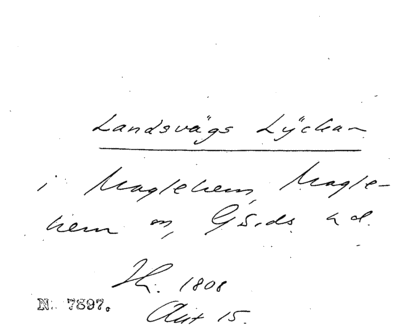 Landsvägs Lÿckan
i Maglehem, Magle-
hem sn, Gärds hd.
Ht. 1808
Akt 15.
N. 7897.